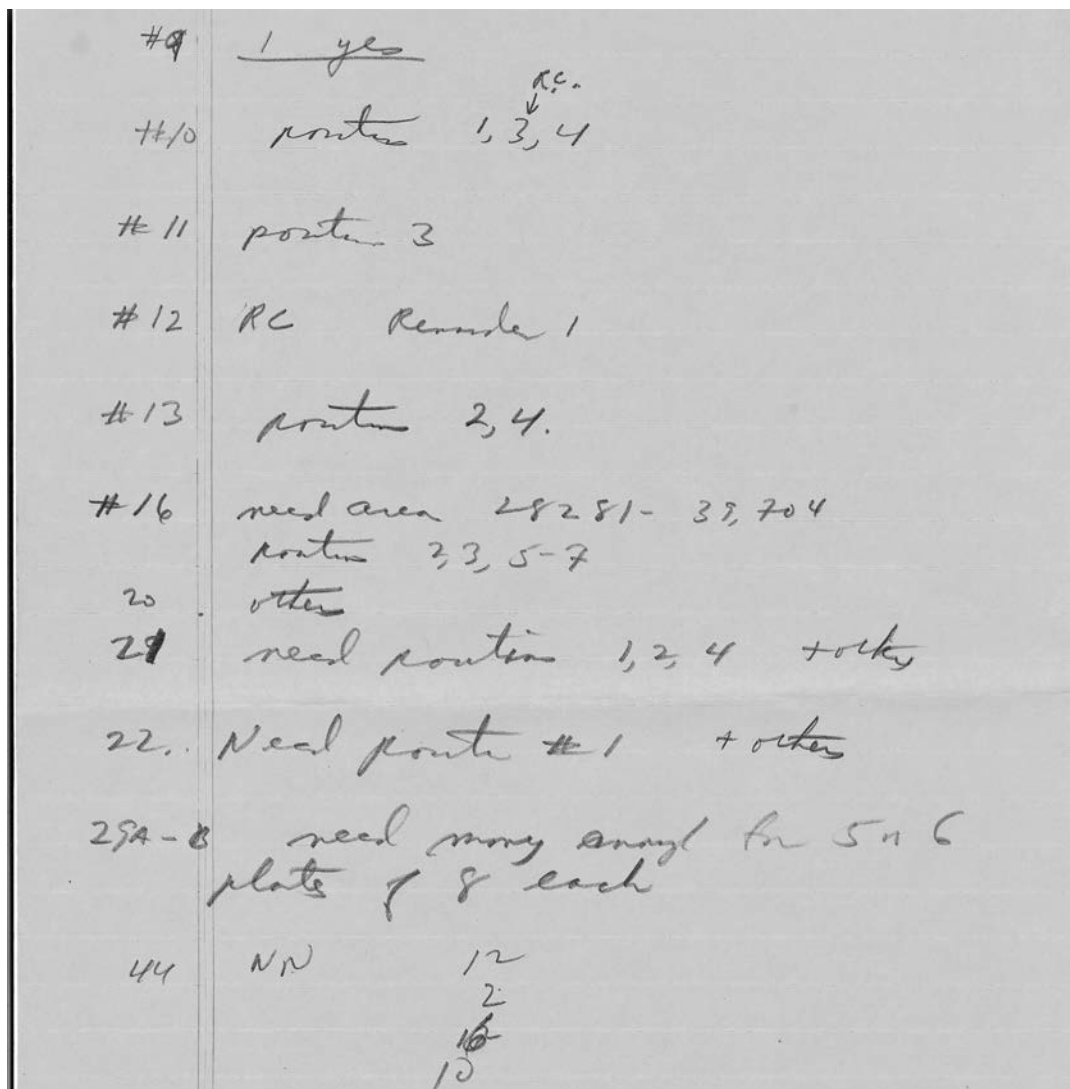 #9 1 yes
R.C.
#10 positions 1, 3, 4
#11 position 3
#12 RC Reminder 1
#13 positions 2, 4.
#16 need area 28281- 39,704
positions 2, 3, 5-7
20 . others
21 need positions 1, 2, 4 + others
22. Need position #1 + others
29A-B need many enough for 5 or 6
plates of 8 each
44 NN 12
2
10